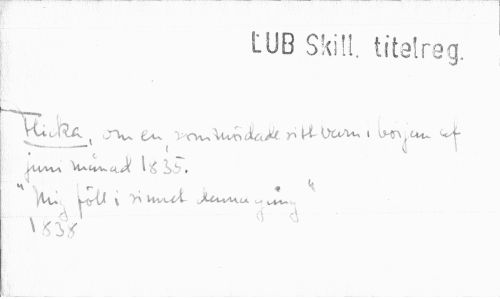 LUB Skill. titelreg.
Flicka, om en, som mördade sitt barn i början af
juni månad 1835.
"Mig föll i sinnet denna gång"
1838